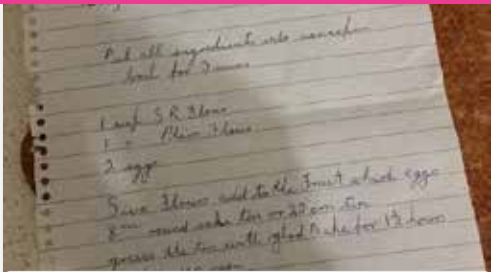 Put all ingredients into saucepan
boil for 3 mins
1 cup S R Flour
1 " Plain Flour
2 eggs
Sive Flours add to the Fruit which eggs
8" round cake tin or 20 cm tin
grease the tin with bake for 1½ hours